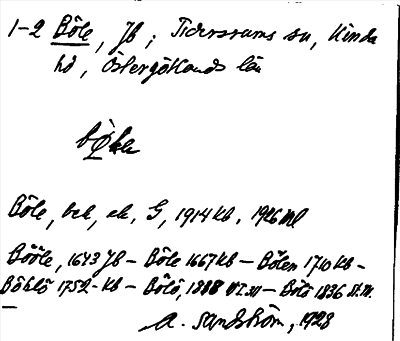 1-2 Böle, Jb; Tidersrums sn, Kinda
hd, Östergötlands län
Böle, bek, ek, G, 1914 kb, 1926 ml
Bööle, 1643 Jb – Böle 1667 kb – Bölen 1710 kb –
1752 kb – Bölö, 1836
A. Sandström, 1928